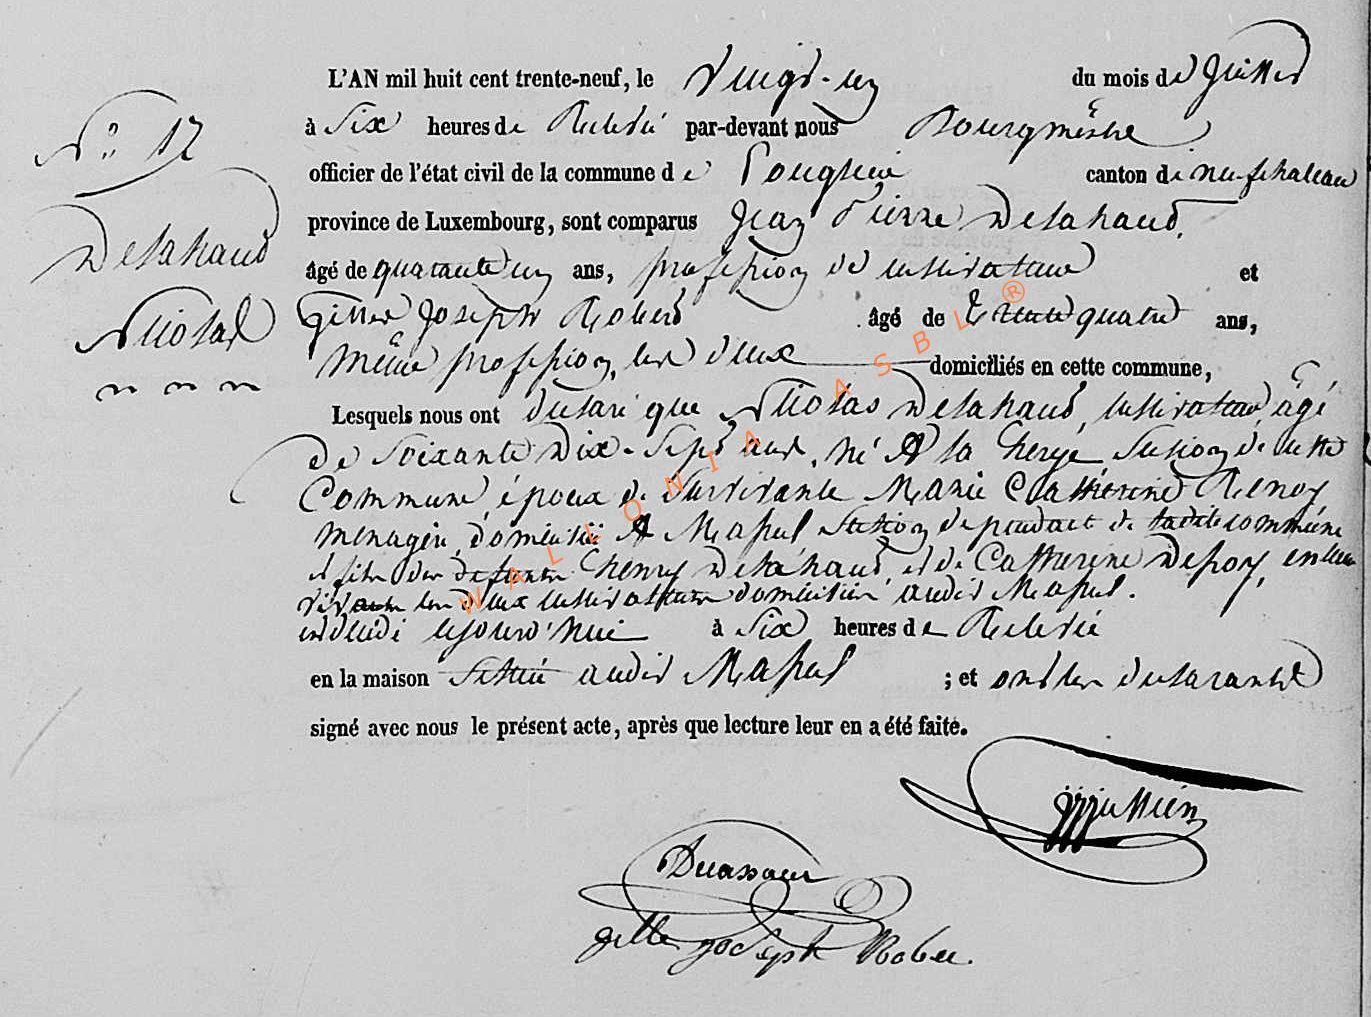 L'AN mil huit cent trente-neuf, le vingt-un du mois de Juillet
N.° 17
à Six heures de Relevée par-devant nous Bourgmêstre
officier de l'état civil de la commune de canton de neufchateau
province de Luxembourg, sont comparus Jean Pierre Delahaud,
Delahaud
âgé de quarante un ans, profession de cultivateur et
Nicolas
Gille Joseph Robert âgé de trente quatre ans,
même profession, les deux domiciliés en cette commune,
Lesquels nous ont déclaré que Nicolas Delahaud, cultivateur âgé
de Soixante Dix-Sept ans, né A la Section de cette
Commune, époux de Survivante Marie Catherine
menagère, domiciliée A Massul Section dependante de ladite commune
et fils des defunts Henry Delahaud, et de Catherine en leur
vivant les deux cultivateurs domiciliés audit Massul.
est décédé cejourd'hui à Six heures de Relevée
en la maison Sittuée audit Massul ; et ont les declarants
signé avec nous le présent acte, après que lecture leur en a été faite.
gille joseph Rober
WALLONIA ASBL ®